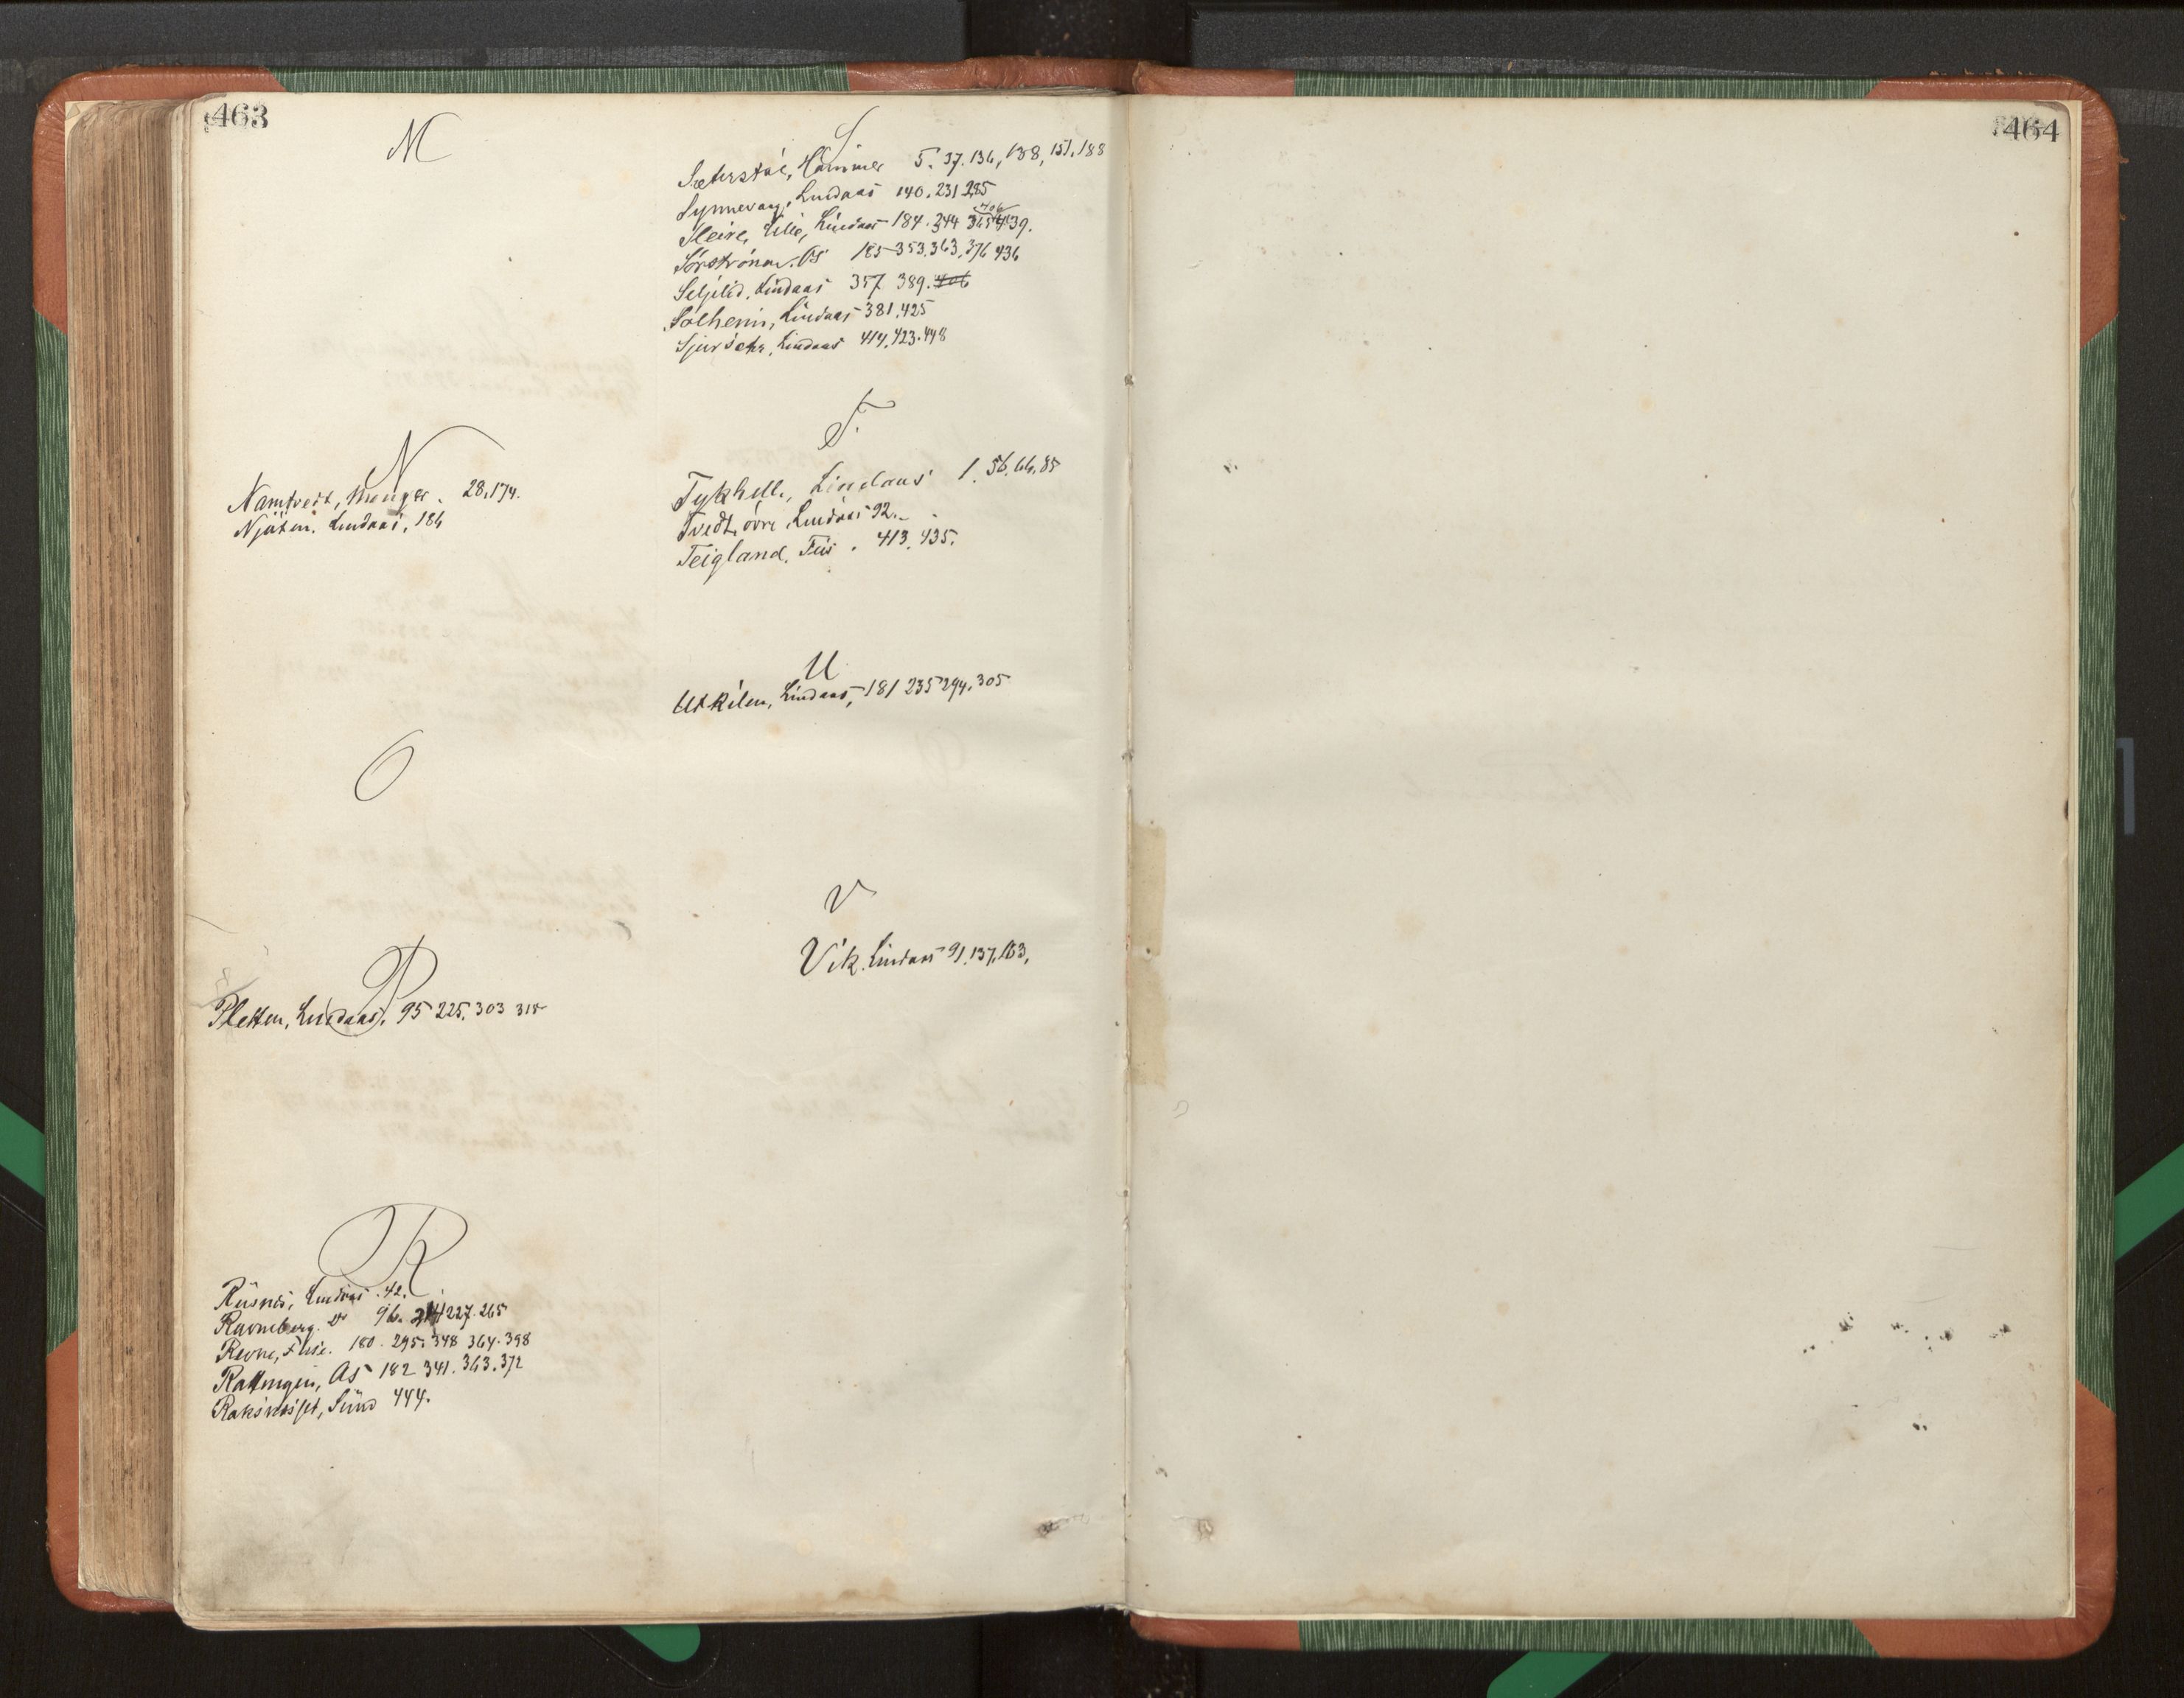 463
M
N
Namtvedt, Manger. 28.174.
Njåten. Lindaas, 186
O
P
Pletten, Lindaas. 95 225. 303 315
R
Risnes, Lindaas. 42.
Ravneberg. do 96. 227. 265
Revne, 180. 295. 348 364. 398
As 182 341. 363. 372
Sund 444.
S
Sæterstøl, Hammer 5. 37. 136, 138, 151. 188
Synnevaag, Lindaas 140. 231 285
Sleire, Lille, Lindaas 184. 344 365 406 439.
Sørstrønen. Os 185 353. 363. 376 436
Seljelid. Lindaas 357 389. 406
Solheim, Lindaas 381. 425
Sjursæter, Lindaas 414. 423. 448
T.
Tykhelle, Lindaas 1. 56. 66. 85
Tvedt, øvre, Lindaas 92.
Teigland. Fus. 413. 435.
U
Utkilen, Lindaas, 181 235 294. 305
V
Vik. Lindaas 91. 137. 163.
464